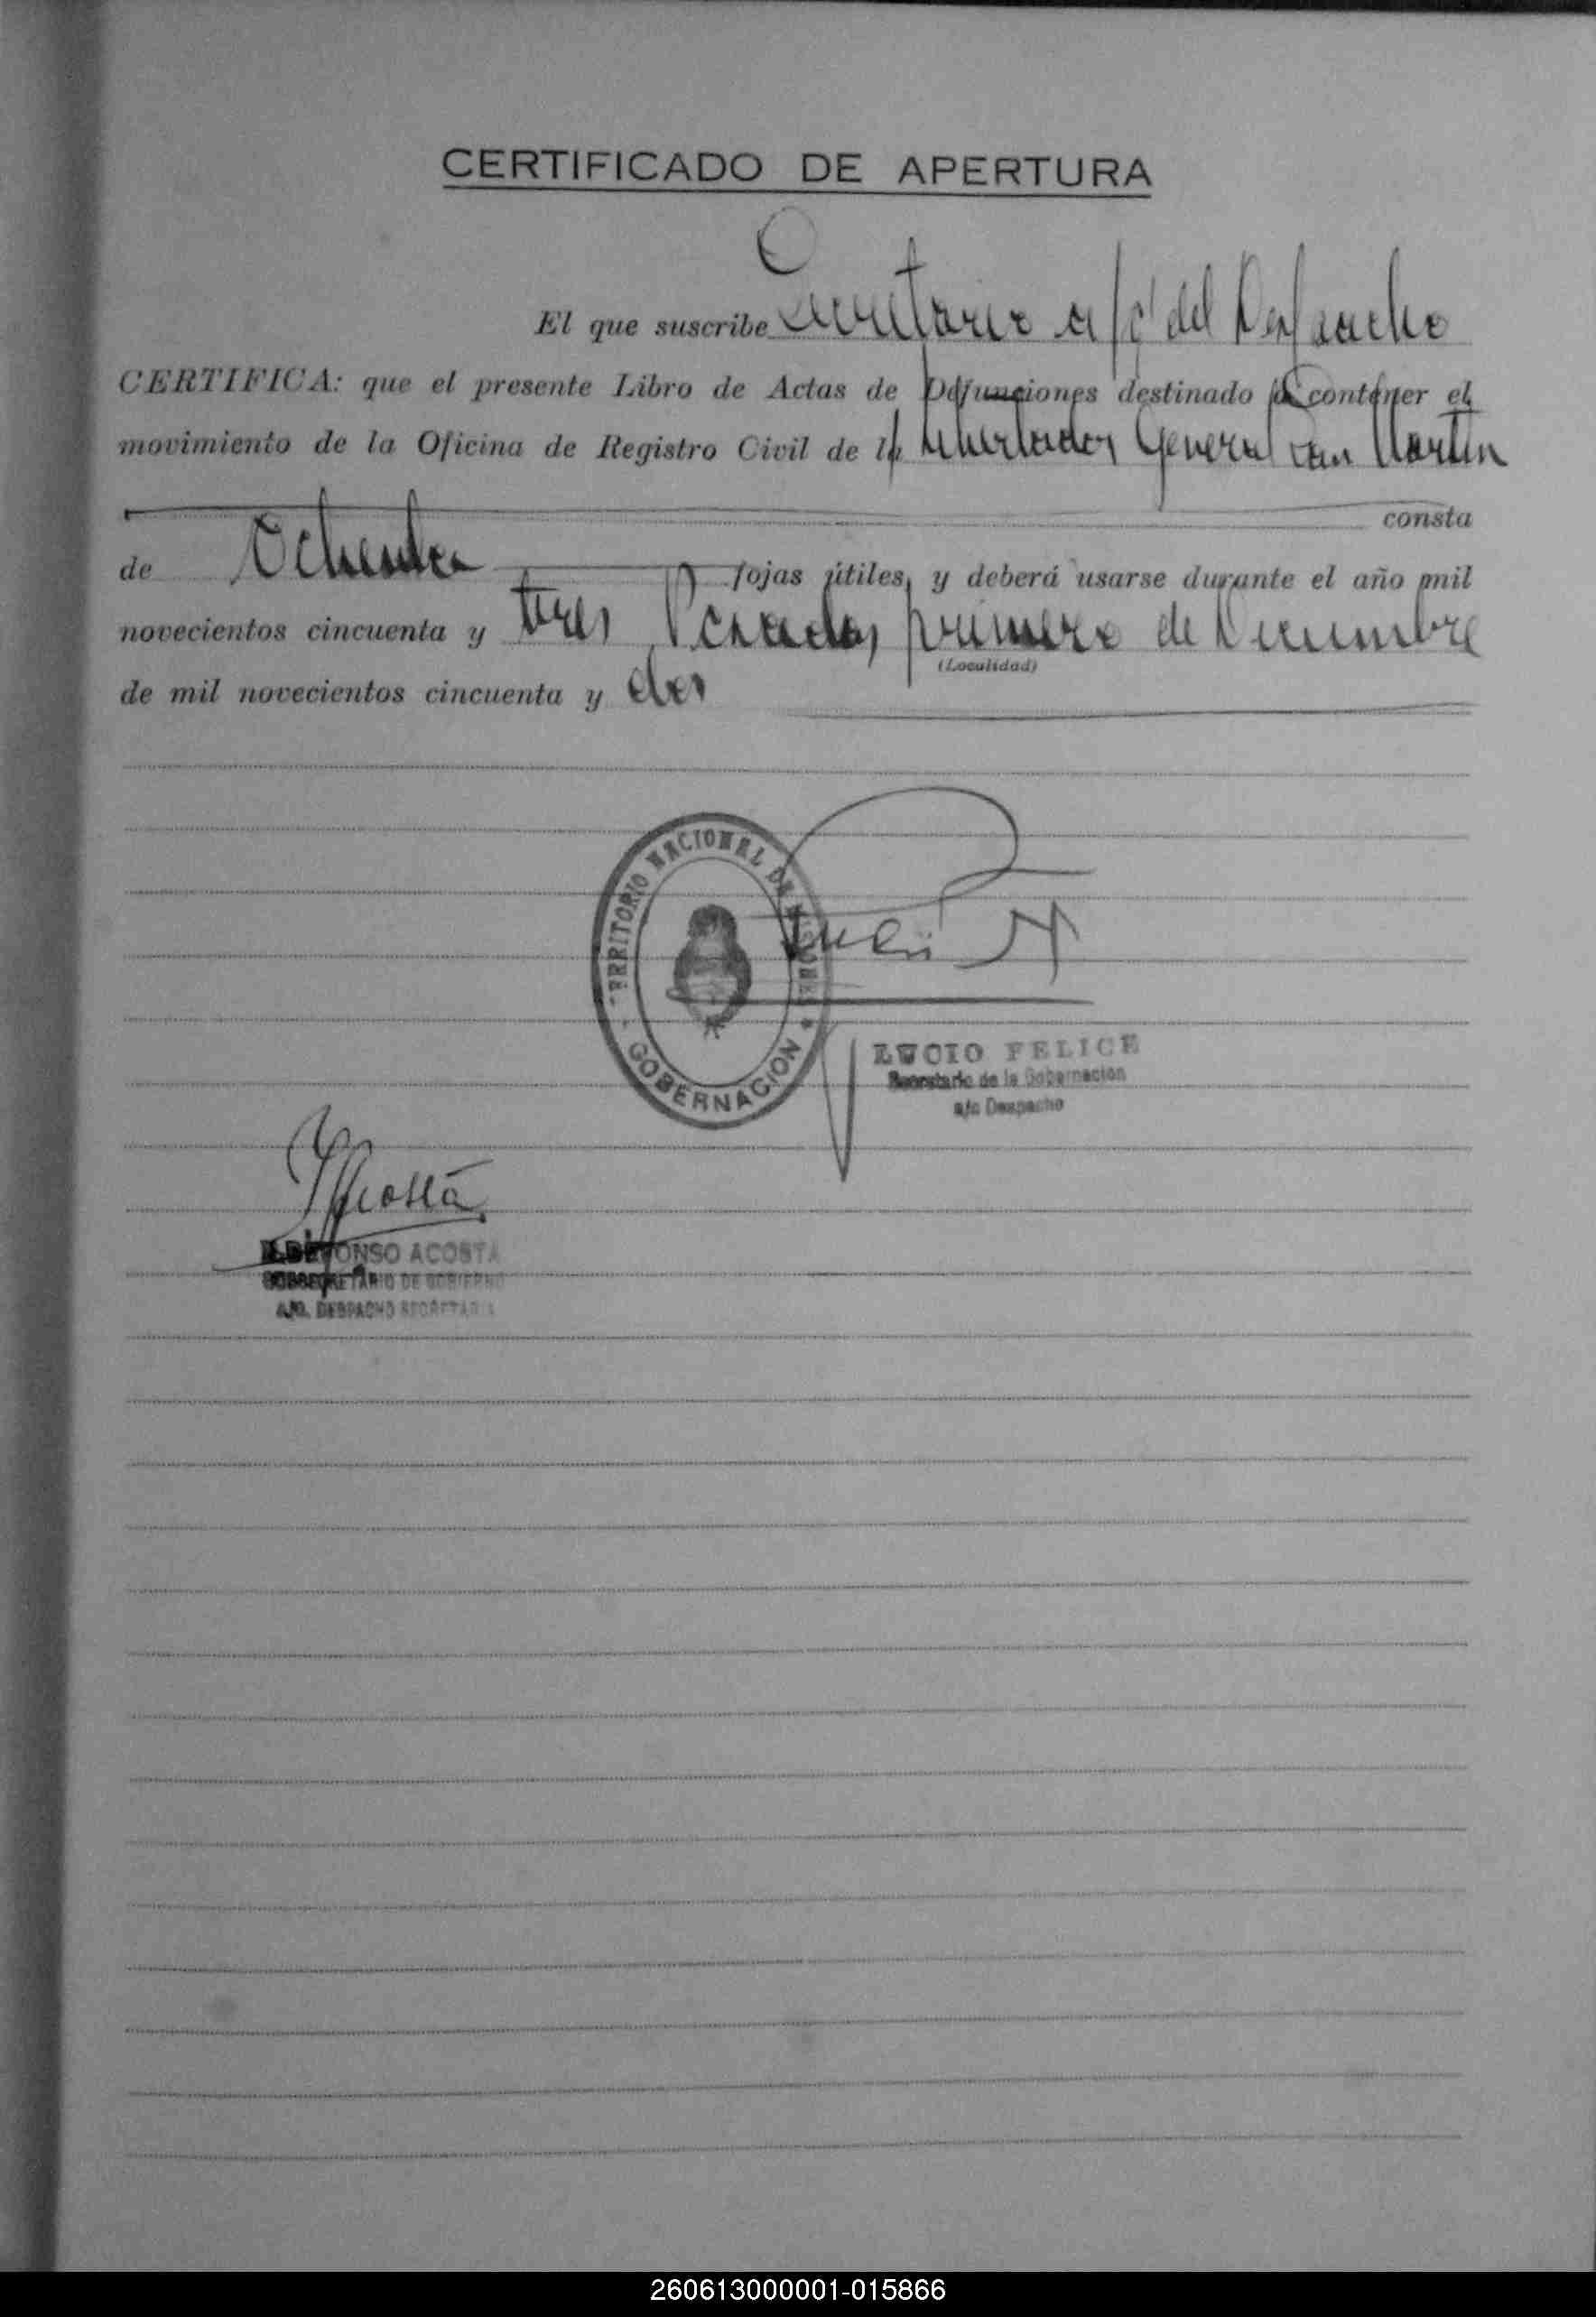 CERTIFICADO DE APERTURA
El que suscribe Secretario a/c del Despacho
CERTIFICA: que el presente Libro de Actas de Defunciones destinado a contener el
movimiento de la Oficina de Registro Civil de la Libertador General San Martín
consta
de Ochenta fojas útiles, y deberá usarse durante el año mil
novecientos cincuenta y tres Posadas, primero de Diciembre
(Localidad)
de mil novecientos cincuenta y dos
TERRITORIO NACIONAL DE MISIONES
GOBERNACION
LUCIO FELICE
Secretario de la Gobernación
a/c Despacho
ILDEFONSO ACOSTA
SUBSECRETARIO DE GOBIERNO
A/C. DESPACHO SECRETARIA
260613000001-015866